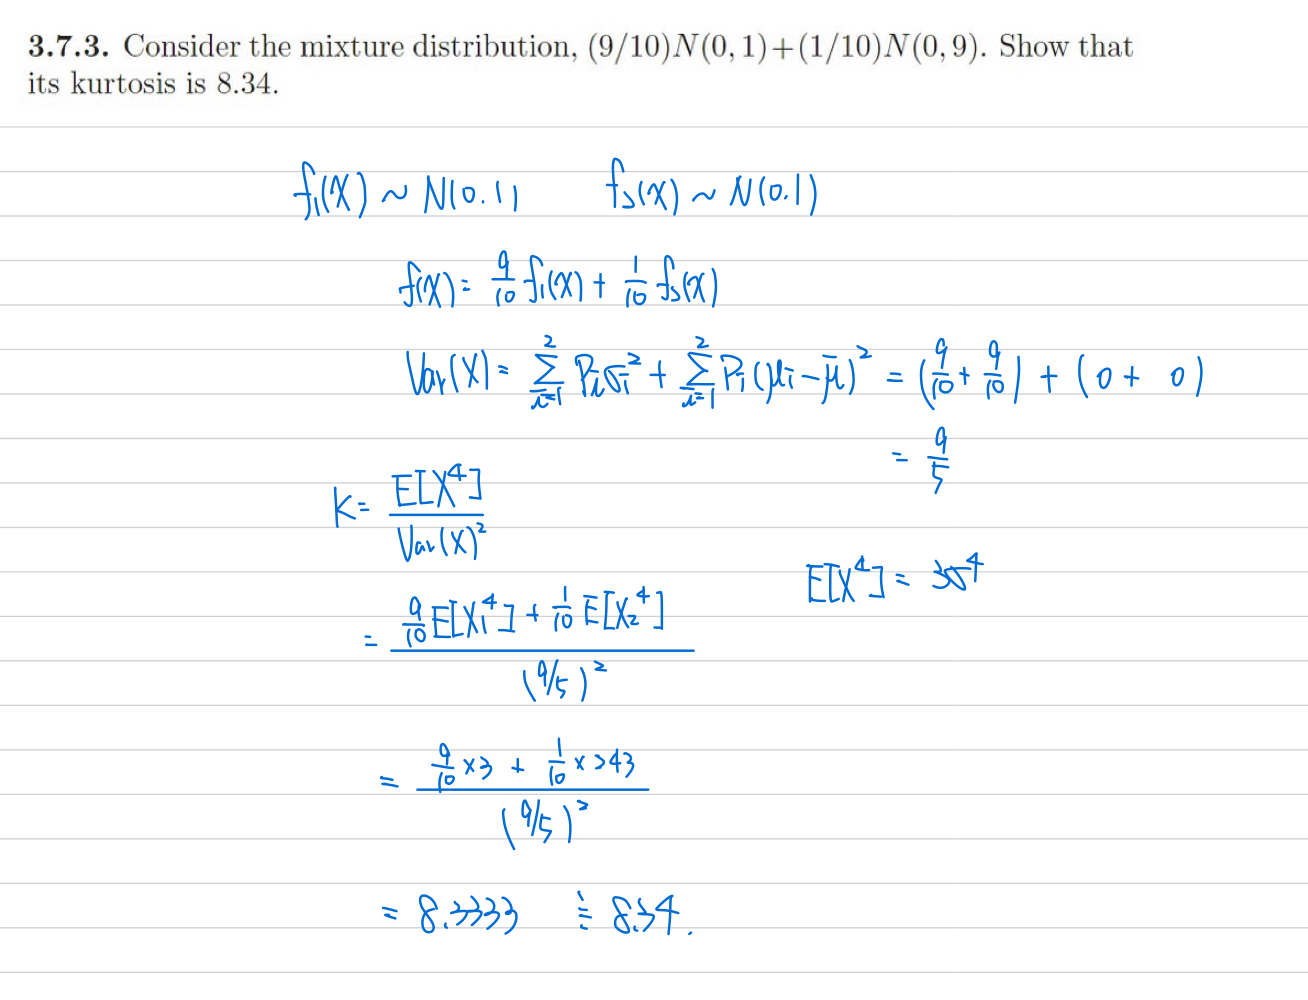 3.7.3. Consider the mixture distribution, (9/10)N(0, 1)+(1/10)N(0, 9). Show that
its kurtosis is 8.34.
f₁(X) ~ N(0.1) f₂(X) ~ N(0.1)
f(X) = 9/10 f₁(X) + 1/10 f₂(X)
Var(X) = Σ_{i=1}^{2} P_i σ_i² + Σ_{i=1}^{2} P_i (μ_i - μ̄)² = (9/10 + 9/10) + (0 + 0)
= 9/5
K = E[X⁴] / Var(X)²
E[X⁴] = 3σ⁴
= (9/10 E[X₁⁴] + 1/10 E[X₂⁴]) / (9/5)²
= (9/10 × 3 + 1/10 × 243) / (9/5)²
= 8.3333 ≒ 8.34.